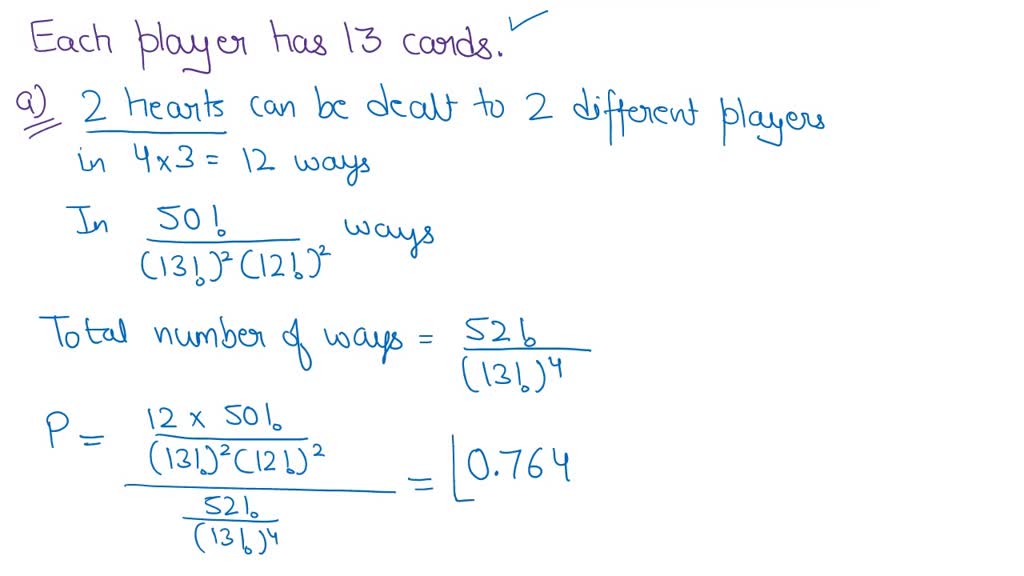 Each player has 13 cards. ✓
a) 2 hearts can be dealt to 2 different players
in 4×3 = 12 ways
In 50! / (13!)²(12!)² ways
Total number of ways = 52! / (13!)⁴
P = (12 × 50! / (13!)²(12!)²) / (52! / (13!)⁴) = 0.764